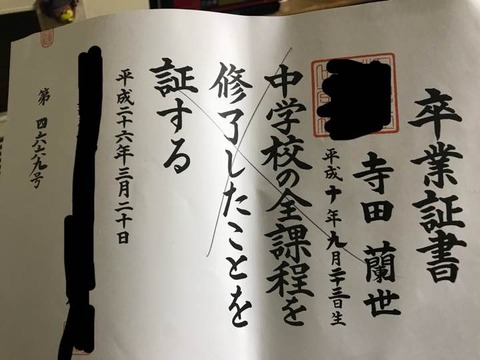 卒業証書
寺田 蘭世
平成十年九月二十三日生
中学校の全課程を
修了したことを
証する
平成二十六年三月二十日
第 四六六九号